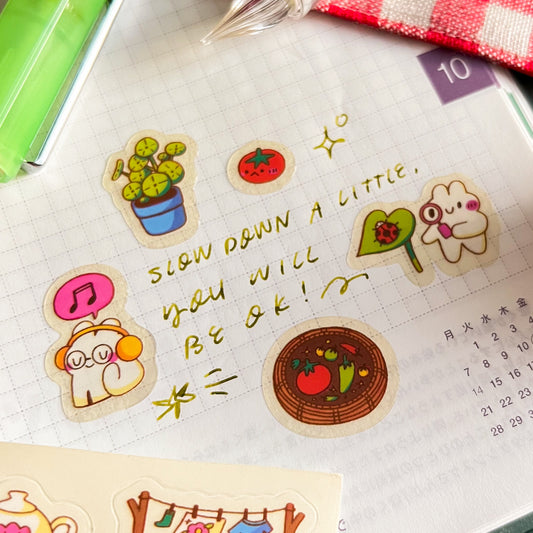 10
SLOW DOWN A LITTLE,
YOU WILL
BE OK!
月 火 水 木 金
1 2 3 4
7 8 9 10
14 15 16 17
21 22 23
28 29 30